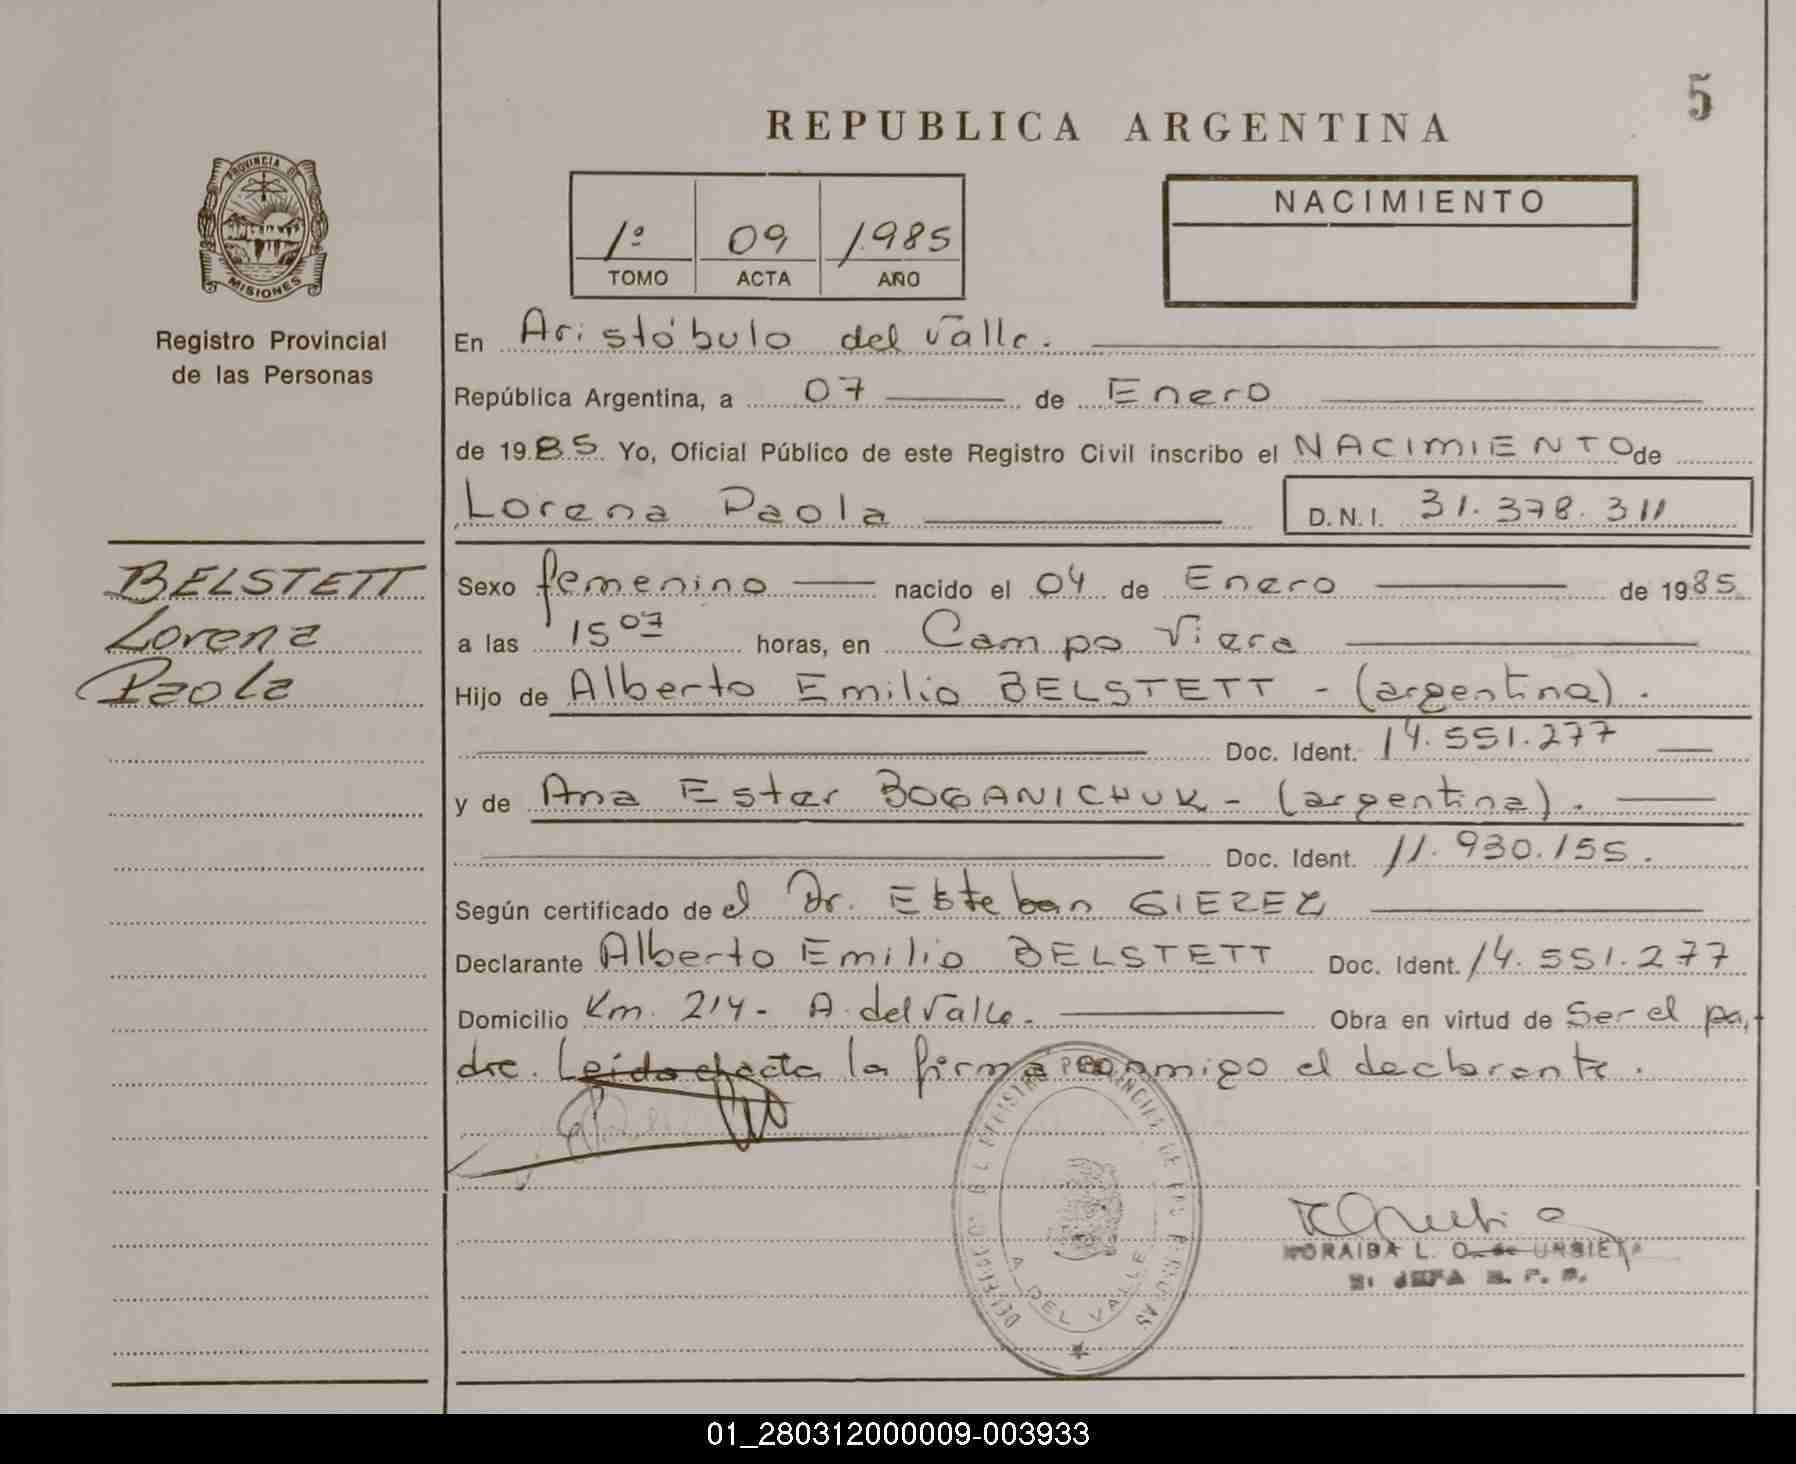 5
REPUBLICA ARGENTINA
PROVINCIA DE
MISIONES
Registro Provincial
de las Personas
1º 09 1.985
TOMO ACTA AÑO
NACIMIENTO
En Aristóbulo del Valle.
República Argentina, a 07 de Enero
de 1985 Yo, Oficial Público de este Registro Civil inscribo el NACIMIENTO de
Lorena Paola D.N.I. 31.378.311
BELSTETT
Lorena
Paola
Sexo femenino nacido el 04 de Enero de 1985
a las 15 07 horas, en Campo Viera
Hijo de Alberto Emilio BELSTETT - (argentina).
Doc. Ident. 14.551.277
y de Ana Ester BOGANICHUK - (argentina).
Doc. Ident. 11.930.155.
Según certificado de el Dr. Esteban
Declarante Alberto Emilio BELSTETT Doc. Ident. 14.551.277
Domicilio Km. 214 - A. del Valle. Obra en virtud de Ser el pa,
dre. Leída el acta la firma conmigo el declarante.
A. DEL VALLE
NORAIBA L. O. de URBIETA
JEFA R. P. P.
01_280312000009-003933